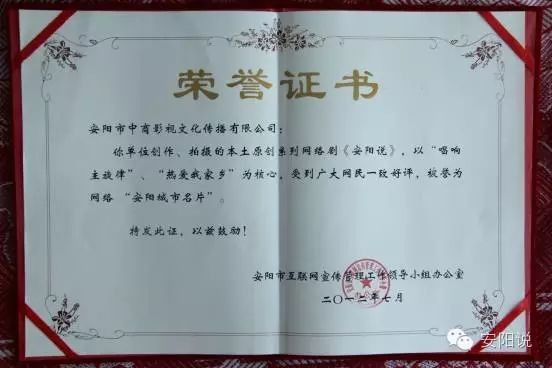 荣誉证书
安阳市中商影视文化传播有限公司：
你单位创作、拍摄的本土原创系列网络剧《安阳说》，以“唱响
主旋律”、“热爱我家乡”为核心，受到广大网民一致好评，被誉为
网络“安阳城市名片”。
特发此证，以兹鼓励！
安阳市互联网宣传管理工作领导小组办公室
二〇一二年七月
安阳说